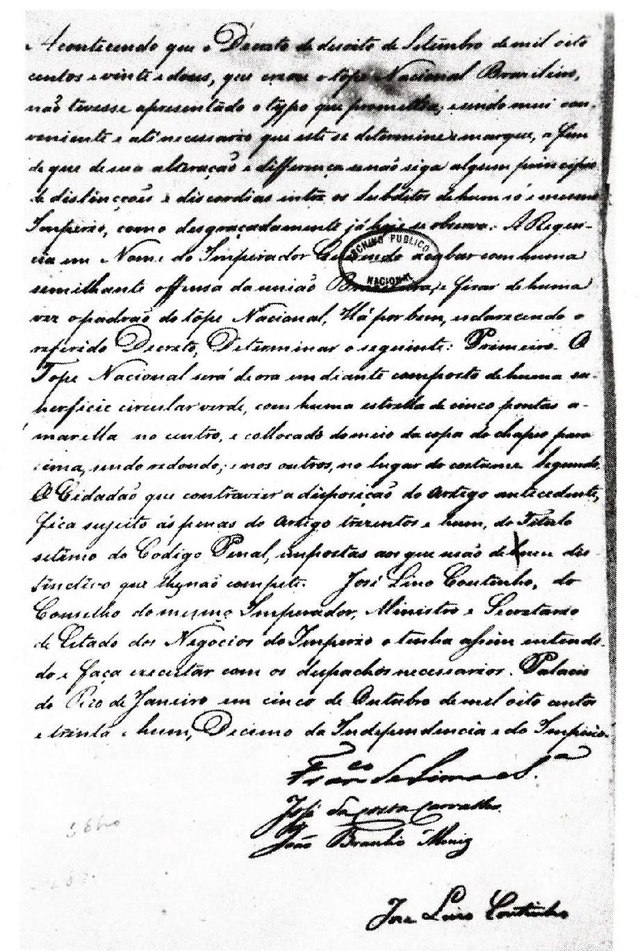 Acontecendo que o Decreto de desoito de Setembro de mil oito
centos e vinte e dous, que creou o tope Nacional Brazileiro,
não tivesse apresentado o typo que promettia; e sendo mui con-
veniente e até necessario que este se determine e marque, a fim
de que de sua alteração e differença senão siga algum principio
de distincções e discordias intra os Subditos de hum só e mesmo
Imperio, como desgraçadamente já hoje se observa: A Regen-
cia em Nome do Imperador Querendo acabar com huma
semilhante offensa da união Brasileira, e fixar de huma
vez o padrão do tope Nacional, Há por bem, esclarecendo o
referido Decreto, Determinar o seguinte: Primeiro. O
Tope Nacional será de ora em diante composto de huma su-
perficie circular verde, com huma estrella de cinco pontas a-
marella no centro, e collocado do meio da copa do chapeo para
cima, sendo redondo; e nos outros, no lugar do costume. Segundo.
O Cidadão que contravier a disposição do Artigo antecedente,
fica sujeito ás penas do Artigo trezentos e hum, do Titulo
setimo do Codigo Penal, impostas aos que usão de hum dis-
tinctivo que lhes não compete. José Lino Coutinho, do
Conselho do mesmo Imperador, Ministro e Secretario
de Estado dos Negocios do Imperio o tenha assim entendi-
do e faça executar com os despachos necessarios. Palacio
do Rio de Janeiro em cinco de Outubro de mil oito centos
e trinta e hum, Decimo da Independencia e do Imperio.
ARCHIVO PUBLICO
NACIONAL
Fran.co de Lima e S.a
José da Costa Carvalho
João Braulio Moniz
José Lino Coutinho